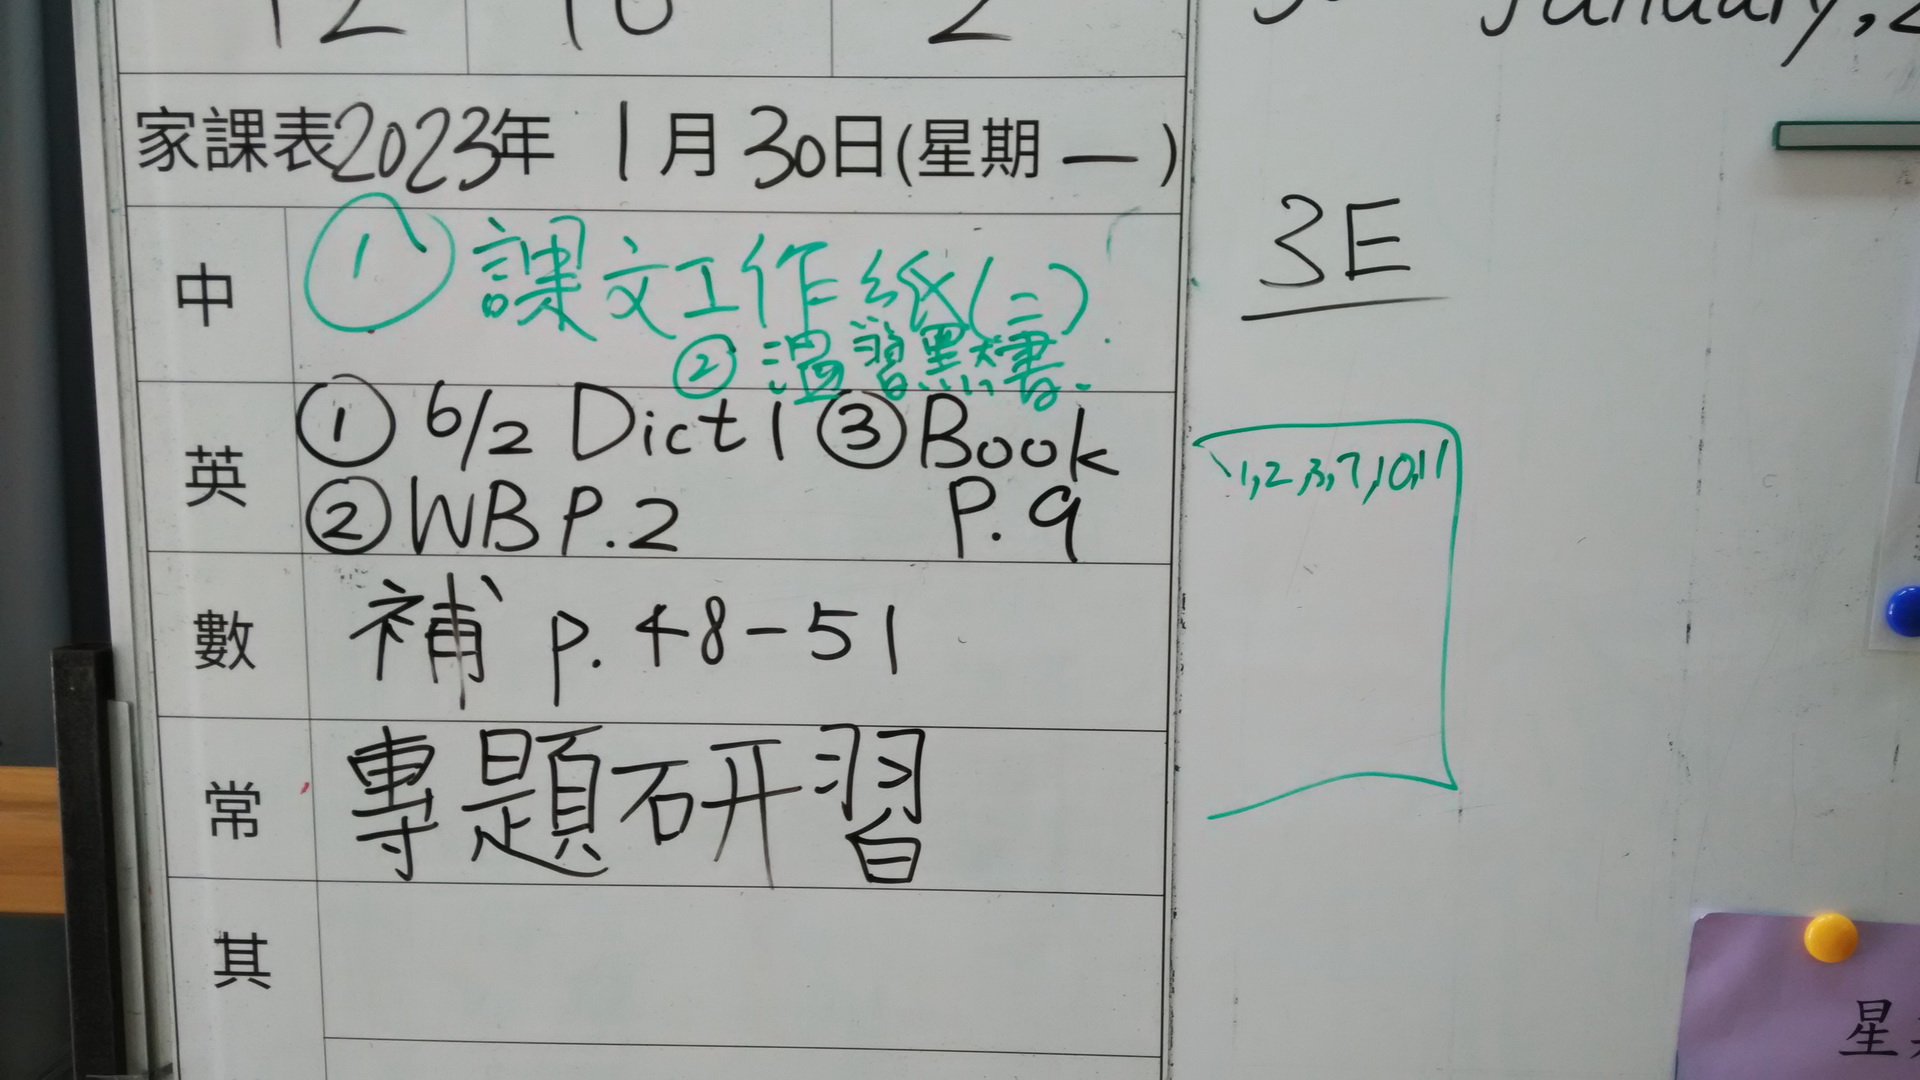 12 18 2
January, 2
家課表2023年 1月30日(星期一)
3E
中 ① 課文工作紙(二)
② 溫習默書.
英 ① 6/2 Dict 1 ③ Book
② WB P.2 P.9
1,2,3,7,10,11
數 補 p. 48-51
常 專題研習
其
星